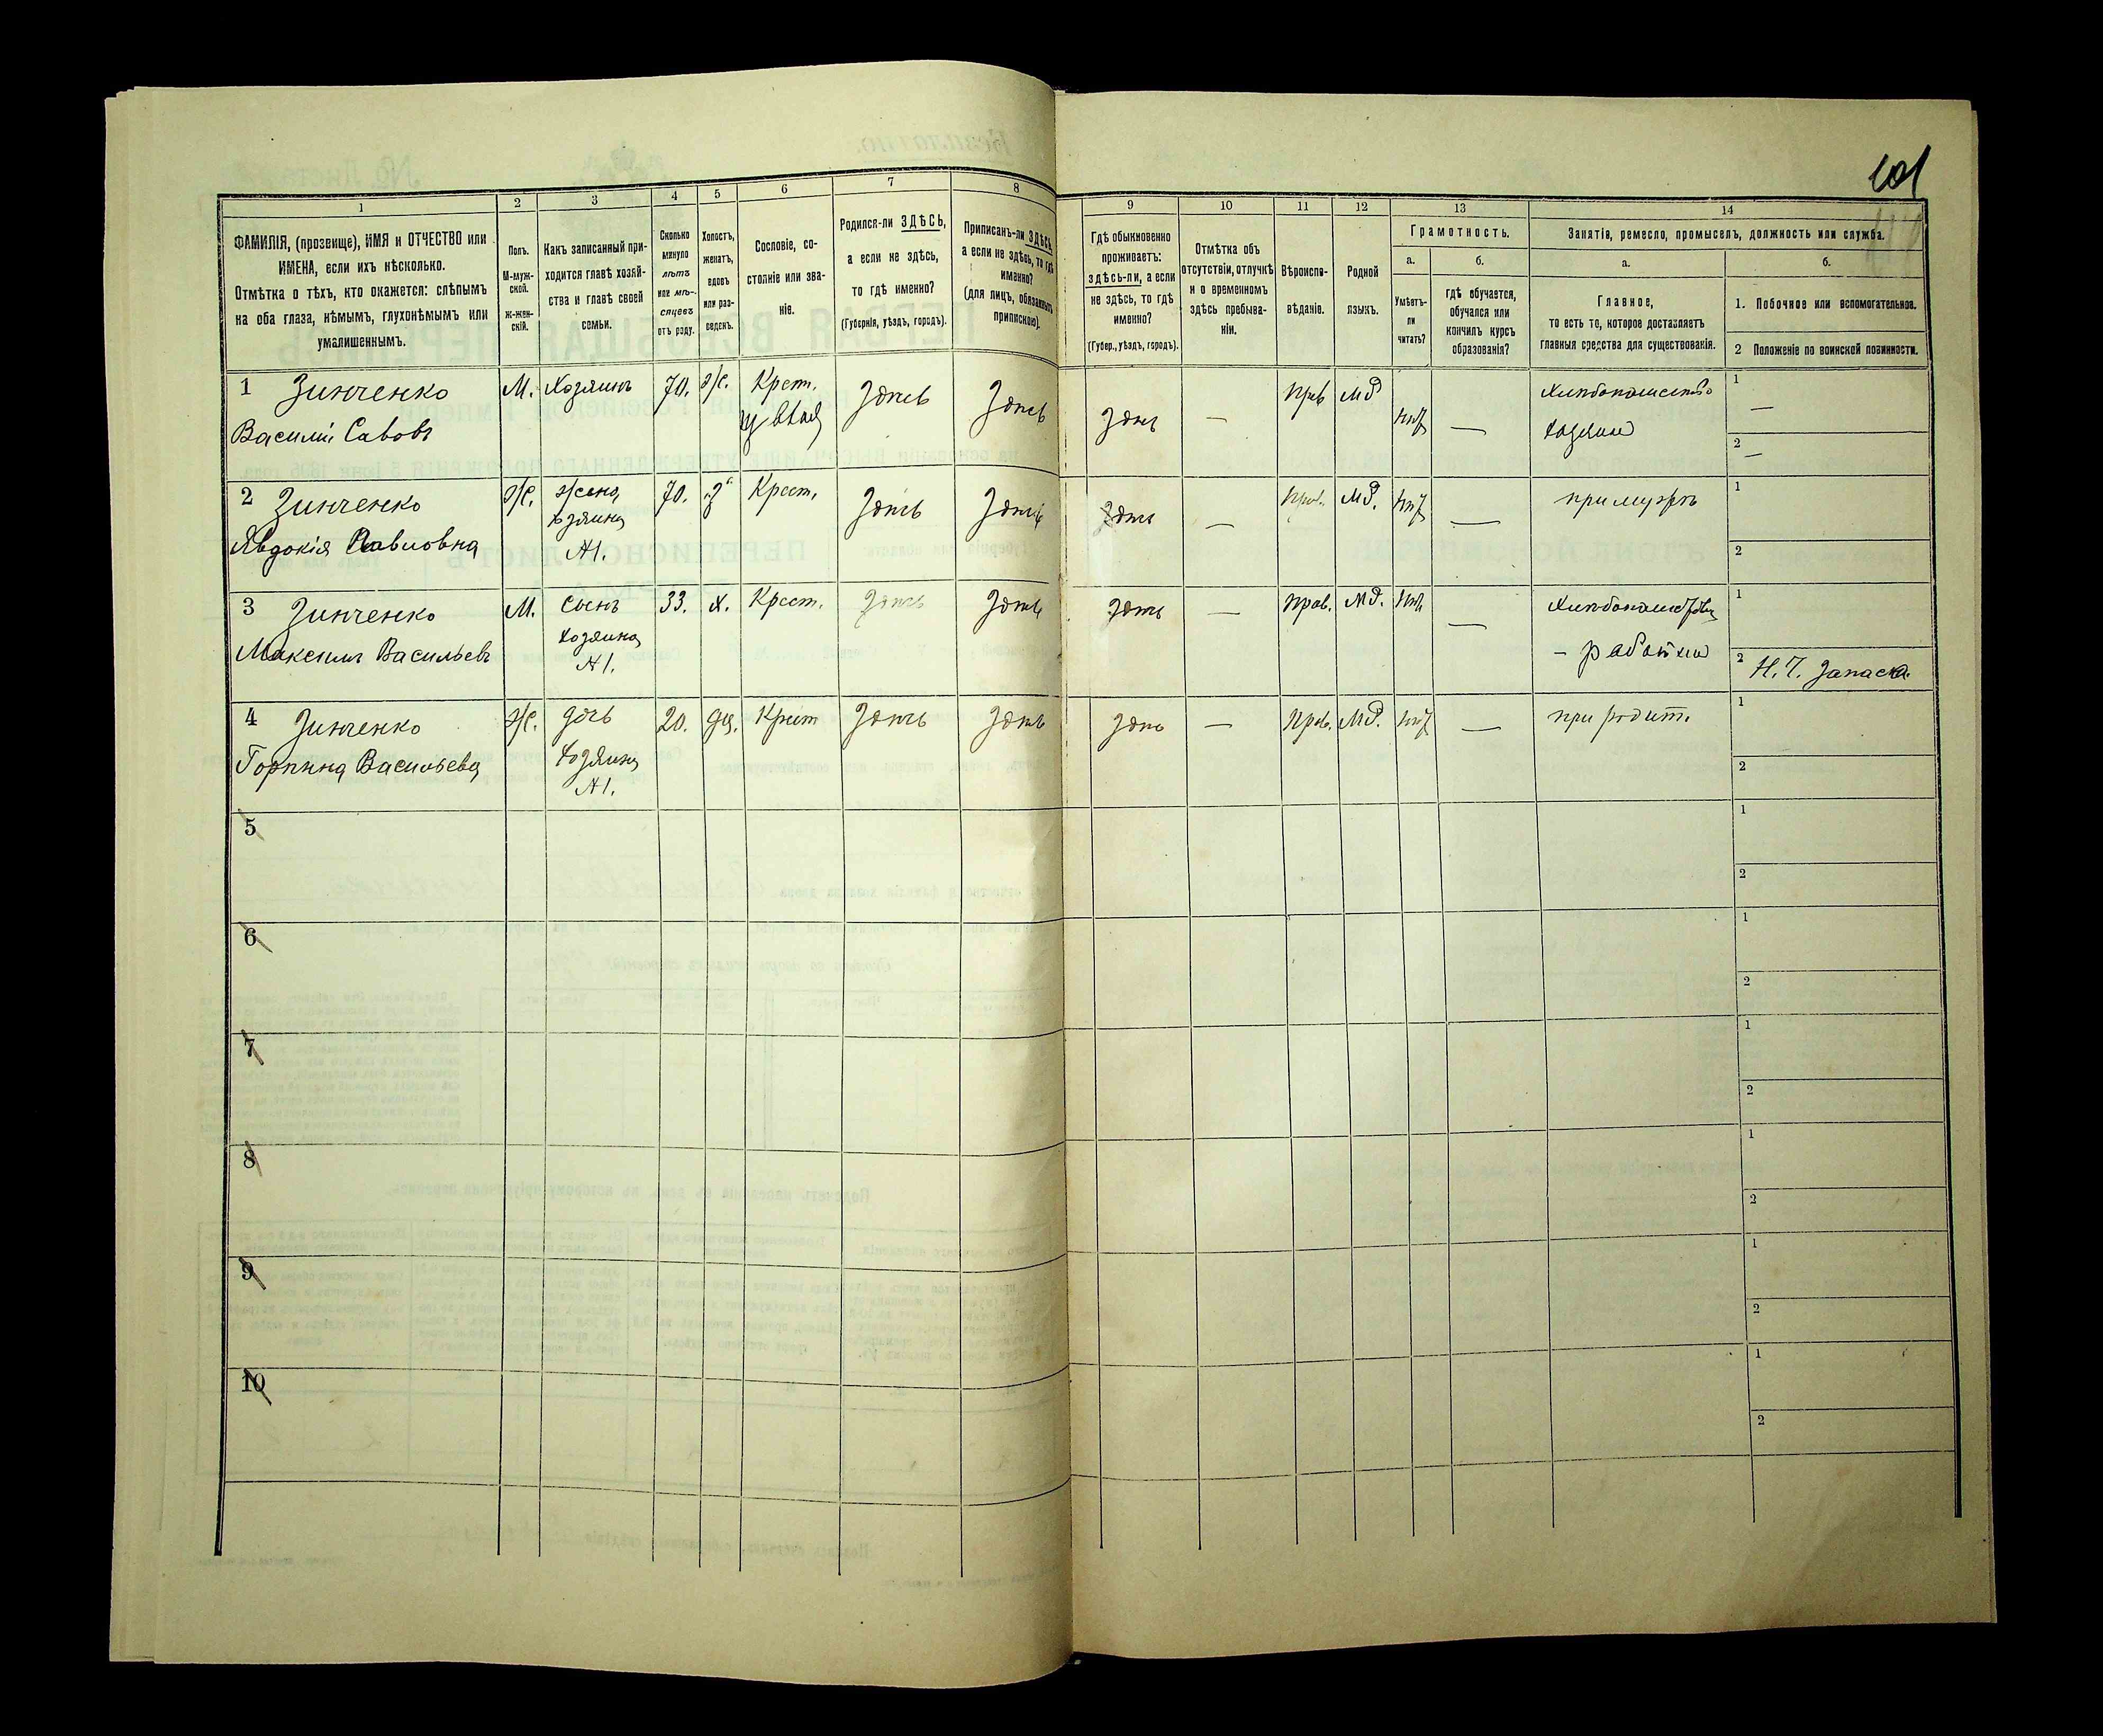 101
1
2
3
4
5
6
7
8
9
10
11
12
13
14
ФАМИЛІЯ, (прозвище), ИМЯ и ОТЧЕСТВО или
ИМЕНА, если ихъ нѣсколько.
Отмѣтка о тѣхъ, кто окажется: слѣпымъ
на оба глаза, нѣмымъ, глухонѣмымъ или
умалишеннымъ.
Полъ.
М-муж-
ской.
Ж-жен-
скій.
Какъ записанный при-
ходится главѣ хозяй-
ства и главѣ своей
семьи.
Сколько
минуло
лѣтъ
или мѣ-
сяцевъ
отъ роду.
Холостъ,
женатъ,
вдовъ
или раз-
веденъ.
Сословіе, со-
стояніе или зва-
ніе.
Родился-ли ЗДѢСЬ,
а если не здѣсь,
то гдѣ именно?
(Губернія, уѣздъ, городъ).
Приписанъ-ли ЗДѢСЬ,
а если не здѣсь, то гдѣ
именно?
(для лицъ, обязанныхъ
припискою).
Гдѣ обыкновенно
проживаетъ:
здѣсь-ли, а если
не здѣсь, то гдѣ
именно?
(Губер., уѣздъ, городъ).
Отмѣтка объ
отсутствіи, отлучкѣ
и о временномъ
здѣсь пребыва-
ніи.
Вѣроиспо-
вѣданіе.
Родной
языкъ.
Грамотность.
а.
б.
Умѣетъ-
ли
читать?
гдѣ обучается,
обучался или
кончилъ курсъ
образованія?
Занятіе, ремесло, промыселъ, должность или служба.
а.
б.
Главное,
то есть то, которое доставляетъ
главныя средства для существованія.
1. Побочное или вспомогательное.
2 Положеніе по воинской повинности.
1 Зинченко
Василій Савовъ
М.
Хозяинъ
70.
Ж.
Крест.
Здѣсь
Здѣсь
Здѣсь
—
Прав
МР
нѣт
—
Хлѣбопашество
хозяин
1
—
2
—
2 Зинченко
Явдокія Павловна
Ж.
Жена
хозяина
№1.
70.
"З"
Крест.
Здѣсь
Здѣсь
Здѣсь
—
Прав.
МР.
нѣт
—
при мужѣ
1
2
3 Зинченко
Максимъ Васильевъ
М.
Сынъ
хозяина
№1.
33.
Х.
Крест.
Здѣсь
Здѣсь
Здѣсь
—
Прав.
МР.
нѣт
—
- работни
1
2 Н. Ч. Запаса.
4 Зинченко
Горпина Васильева
Ж.
дочь
хозяина
№1.
20.
дѣ.
Крест
Здѣсь
Здѣсь
Здѣсь
—
Прав.
МР.
нѣт
—
при родит.
1
2
5
1
2
6
1
2
7
1
2
8
1
2
9
1
2
10
1
2